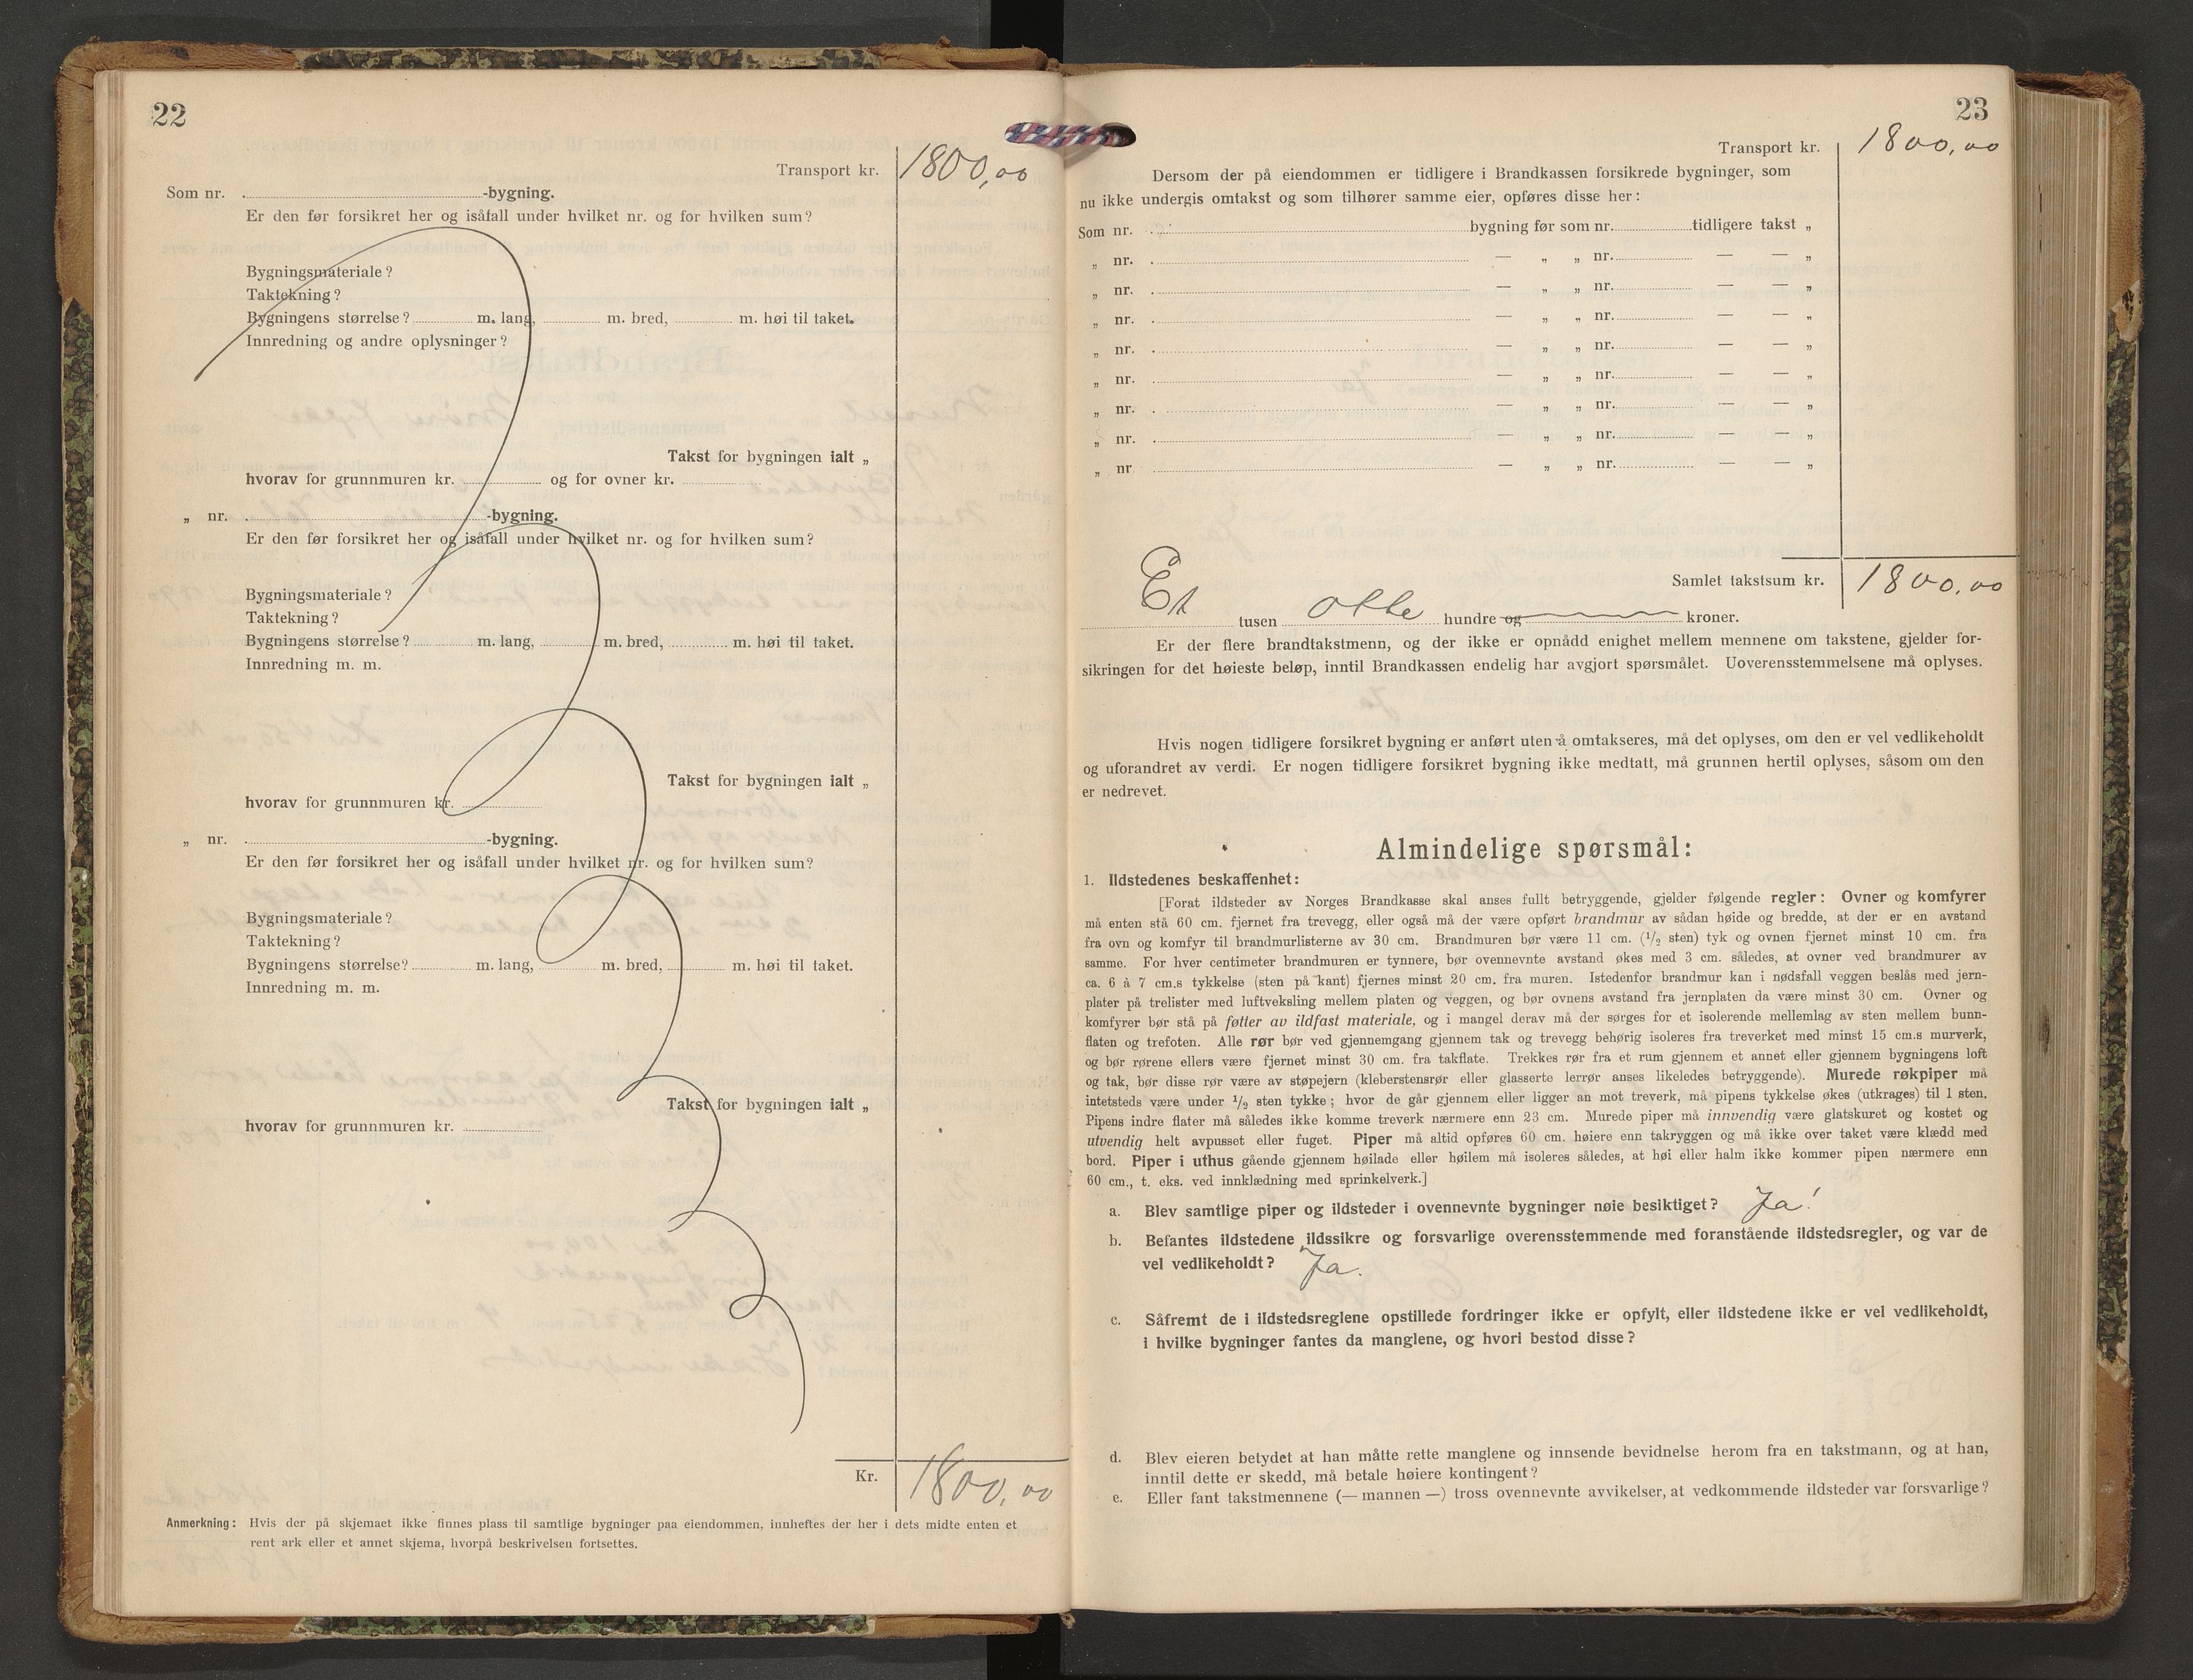 22
Transport kr. 1800,00
Som nr. -bygning.
Er den før forsikret her og isåfall under hvilket nr. og for hvilken sum?
Bygningsmateriale?
Taktekning?
Bygningens størrelse? m. lang, m. bred, m. høi til taket.
Innredning og andre oplysninger?
Takst for bygningen ialt „
hvorav for grunnmuren kr. og for ovner kr.
„ nr. -bygning.
Er den før forsikret her og isåfall under hvilket nr. og for hvilken sum?
Bygningsmateriale?
Taktekning?
Bygningens størrelse? m. lang, m. bred, m. høi til taket.
Innredning m. m.
Takst for bygningen ialt „
hvorav for grunnmuren kr.
„ nr. -bygning.
Er den før forsikret her og isåfall under hvilket nr. og for hvilken sum?
Bygningsmateriale?
Taktekning?
Bygningens størrelse? m. lang, m. bred, m. høi til taket.
Innredning m. m.
Takst for bygningen ialt „
hvorav for grunnmuren kr.
Kr. 1800,00
Anmerkning: Hvis der på skjemaet ikke finnes plass til samtlige bygninger paa eiendommen, innheftes der her i dets midte enten et
rent ark eller et annet skjema, hvorpå beskrivelsen fortsettes.
23
Transport kr. 1800,00
Dersom der på eiendommen er tidligere i Brandkassen forsikrede bygninger, som
nu ikke undergis omtakst og som tilhører samme eier, opføres disse her:
Som nr. bygning før som nr. tidligere takst „
„ nr. — „ „ nr. — — „
„ nr. — „ „ nr. — — „
„ nr. — „ „ nr. — — „
„ nr. — „ „ nr. — — „
„ nr. — „ „ nr. — — „
„ nr. — „ „ nr. — — „
„ nr. — „ „ nr. — — „
„ nr — „ „ nr. — — „
Samlet takstsum kr. 1800,00
Et tusen otte hundre og kroner.
Er der flere brandtakstmenn, og der ikke er opnådd enighet mellem mennene om takstene, gjelder for-
sikringen for det høieste beløp, inntil Brandkassen endelig har avgjort spørsmålet. Uoverensstemmelsene må oplyses.
Hvis nogen tidligere forsikret bygning er anført uten å omtakseres, må det oplyses, om den er vel vedlikeholdt
og uforandret av verdi. Er nogen tidligere forsikret bygning ikke medtatt, må grunnen hertil oplyses, såsom om den
er nedrevet.
Almindelige spørsmål:
1. Ildstedenes beskaffenhet:
[Forat ildsteder av Norges Brandkasse skal anses fullt betryggende, gjelder følgende regler: Ovner og komfyrer
må enten stå 60 cm. fjernet fra trevegg, eller også må der være opført brandmur av sådan høide og bredde, at der er en avstand
fra ovn og komfyr til brandmurlisterne av 30 cm. Brandmuren bør være 11 cm. (1/2 sten) tyk og ovnen fjernet minst 10 cm. fra
samme. For hver centimeter brandmuren er tynnere, bør ovennevnte avstand økes med 3 cm. således, at ovner ved brandmurer av
ca. 6 à 7 cm.s tykkelse (sten på kant) fjernes minst 20 cm. fra muren. Istedenfor brandmur kan i nødsfall veggen beslås med jern-
plater på trelister med luftveksling mellem platen og veggen, og bør ovnens avstand fra jernplaten da være minst 30 cm. Ovner og
komfyrer bør stå på føtter av ildfast materiale, og i mangel derav må der sørges for et isolerende mellemlag av sten mellem bunn-
flaten og trefoten. Alle rør bør ved gjennemgang gjennem tak og trevegg behørig isoleres fra treverket med minst 15 cm.s murverk,
og bør rørene ellers være fjernet minst 30 cm. fra takflate. Trekkes rør fra et rum gjennem et annet eller gjennem bygningens loft
og tak, bør disse rør være av støpejern (kleberstensrør eller glasserte lerrør anses likeledes betryggende). Murede røkpiper må
intetsteds være under 1/2 sten tykke; hvor de går gjennem eller ligger an mot treverk, må pipens tykkelse økes (utkrages) til 1 sten.
Pipens indre flater må således ikke komme treverk nærmere enn 23 cm. Murede piper må innvendig være glatskuret og kostet og
utvendig helt avpusset eller fuget. Piper må altid opføres 60 cm. høiere enn takryggen og må ikke over taket være klædd med
bord. Piper i uthus gående gjennem høilade eller høilem må isoleres således, at høi eller halm ikke kommer pipen nærmere enn
60 cm., t. eks. ved innklædning med sprinkelverk.]
a. Blev samtlige piper og ildsteder i ovennevnte bygninger nøie besiktiget? Ja!
b. Befantes ildstedene ildssikre og forsvarlige overensstemmende med foranstående ildstedsregler, og var de
vel vedlikeholdt? Ja.
c. Såfremt de i ildstedsreglene opstillede fordringer ikke er opfylt, eller ildstedene ikke er vel vedlikeholdt,
i hvilke bygninger fantes da manglene, og hvori bestod disse?
d. Blev eieren betydet at han måtte rette manglene og innsende bevidnelse herom fra en takstmann, og at han,
inntil dette er skedd, må betale høiere kontingent?
e. Eller fant takstmennene (— mannen —) tross ovennevnte avvikelser, at vedkommende ildsteder var forsvarlige?